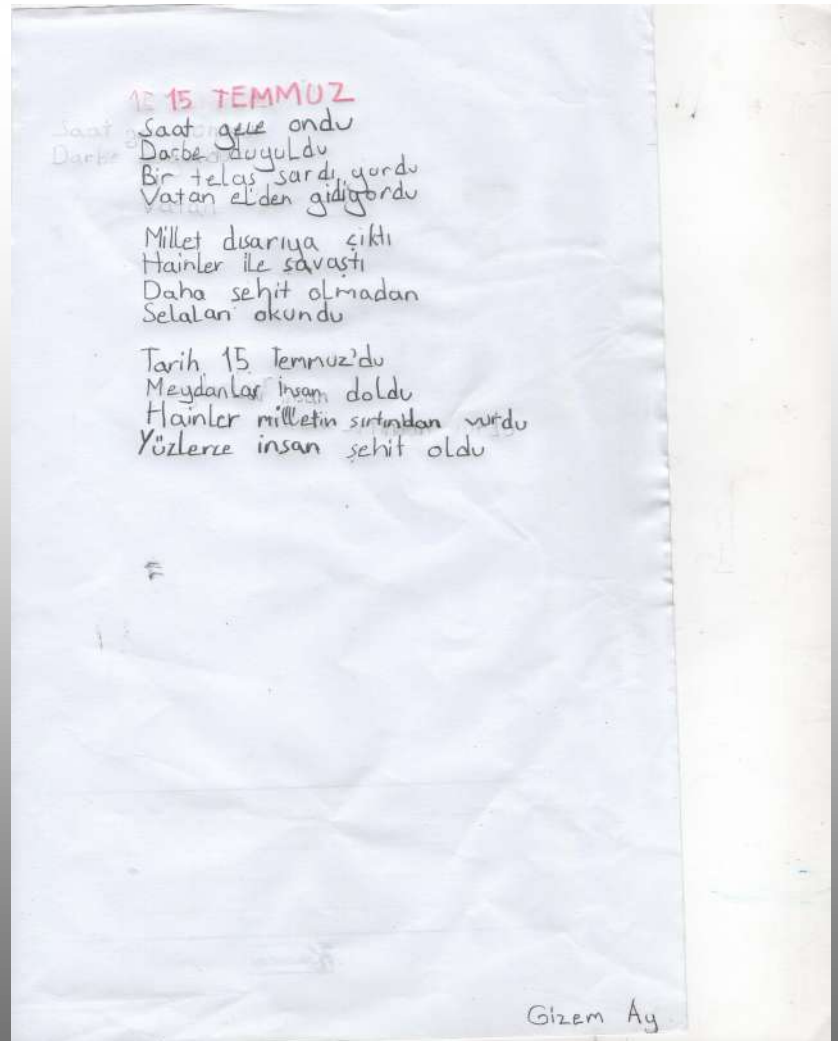 15 TEMMUZ
Saat gece ondu
Darbe duyuldu
Bir telaş sardı yurdu
Vatan elden gidiyordu
Millet dışarıya çıktı
Hainler ile savaştı
Daha şehit olmadan
Selaları okundu
Tarih 15 Temmuz'du
Meydanlar insan doldu
Hainler milletin sırtından vurdu
Yüzlerce insan şehit oldu
Gizem Ay